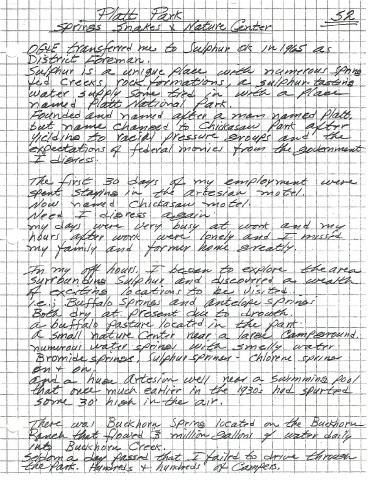 Platt Park 52
Springs Snakes & Nature Center
OG&E transferred me to Sulphur Ok in 1965 as
District Foreman.
Sulphur is a unique place with numerous spring
fed creeks, rock formations, a sulphur tasting
water supply some tied in with a place
named Platt National Park.
Founded and named after a man named Platt,
but name changed to Chickasaw Park after
yielding to racial pressure groups and the
expectations of federal monies from the government
I digress.
The first 30 days of my employment were
spent staying in the Artesian motel.
Now named Chickasaw motel.
Need I digress again.
my days were very busy at work and my
hours after work were lonely and I missed
my family and former home greatly.
In my off hours. I began to explore the area
surrounding Sulphur and discovered a wealth
of exciting locations to be visited
i.e.; Buffalo Springs and antelope springs:
Both dry at present due to drouth.
a buffalo pasture located in the park.
a small nature Center near a large Campground.
numerous water springs with smelly water
Bromide springs, Sulphur springs - chlorene spring
on & on.
and a huge Artesion well near a swimming pool
that once much earlier in the 1930s had spurted
some 30' high in the air.
There was Buckhorn Spring located on the Buckhorn
Ranch that flowed 3 million gallons of water daily
into Buckhorn Creek.
seldom a day passed that I failed to drive through
the park. Hundreds & hundreds of Campers.